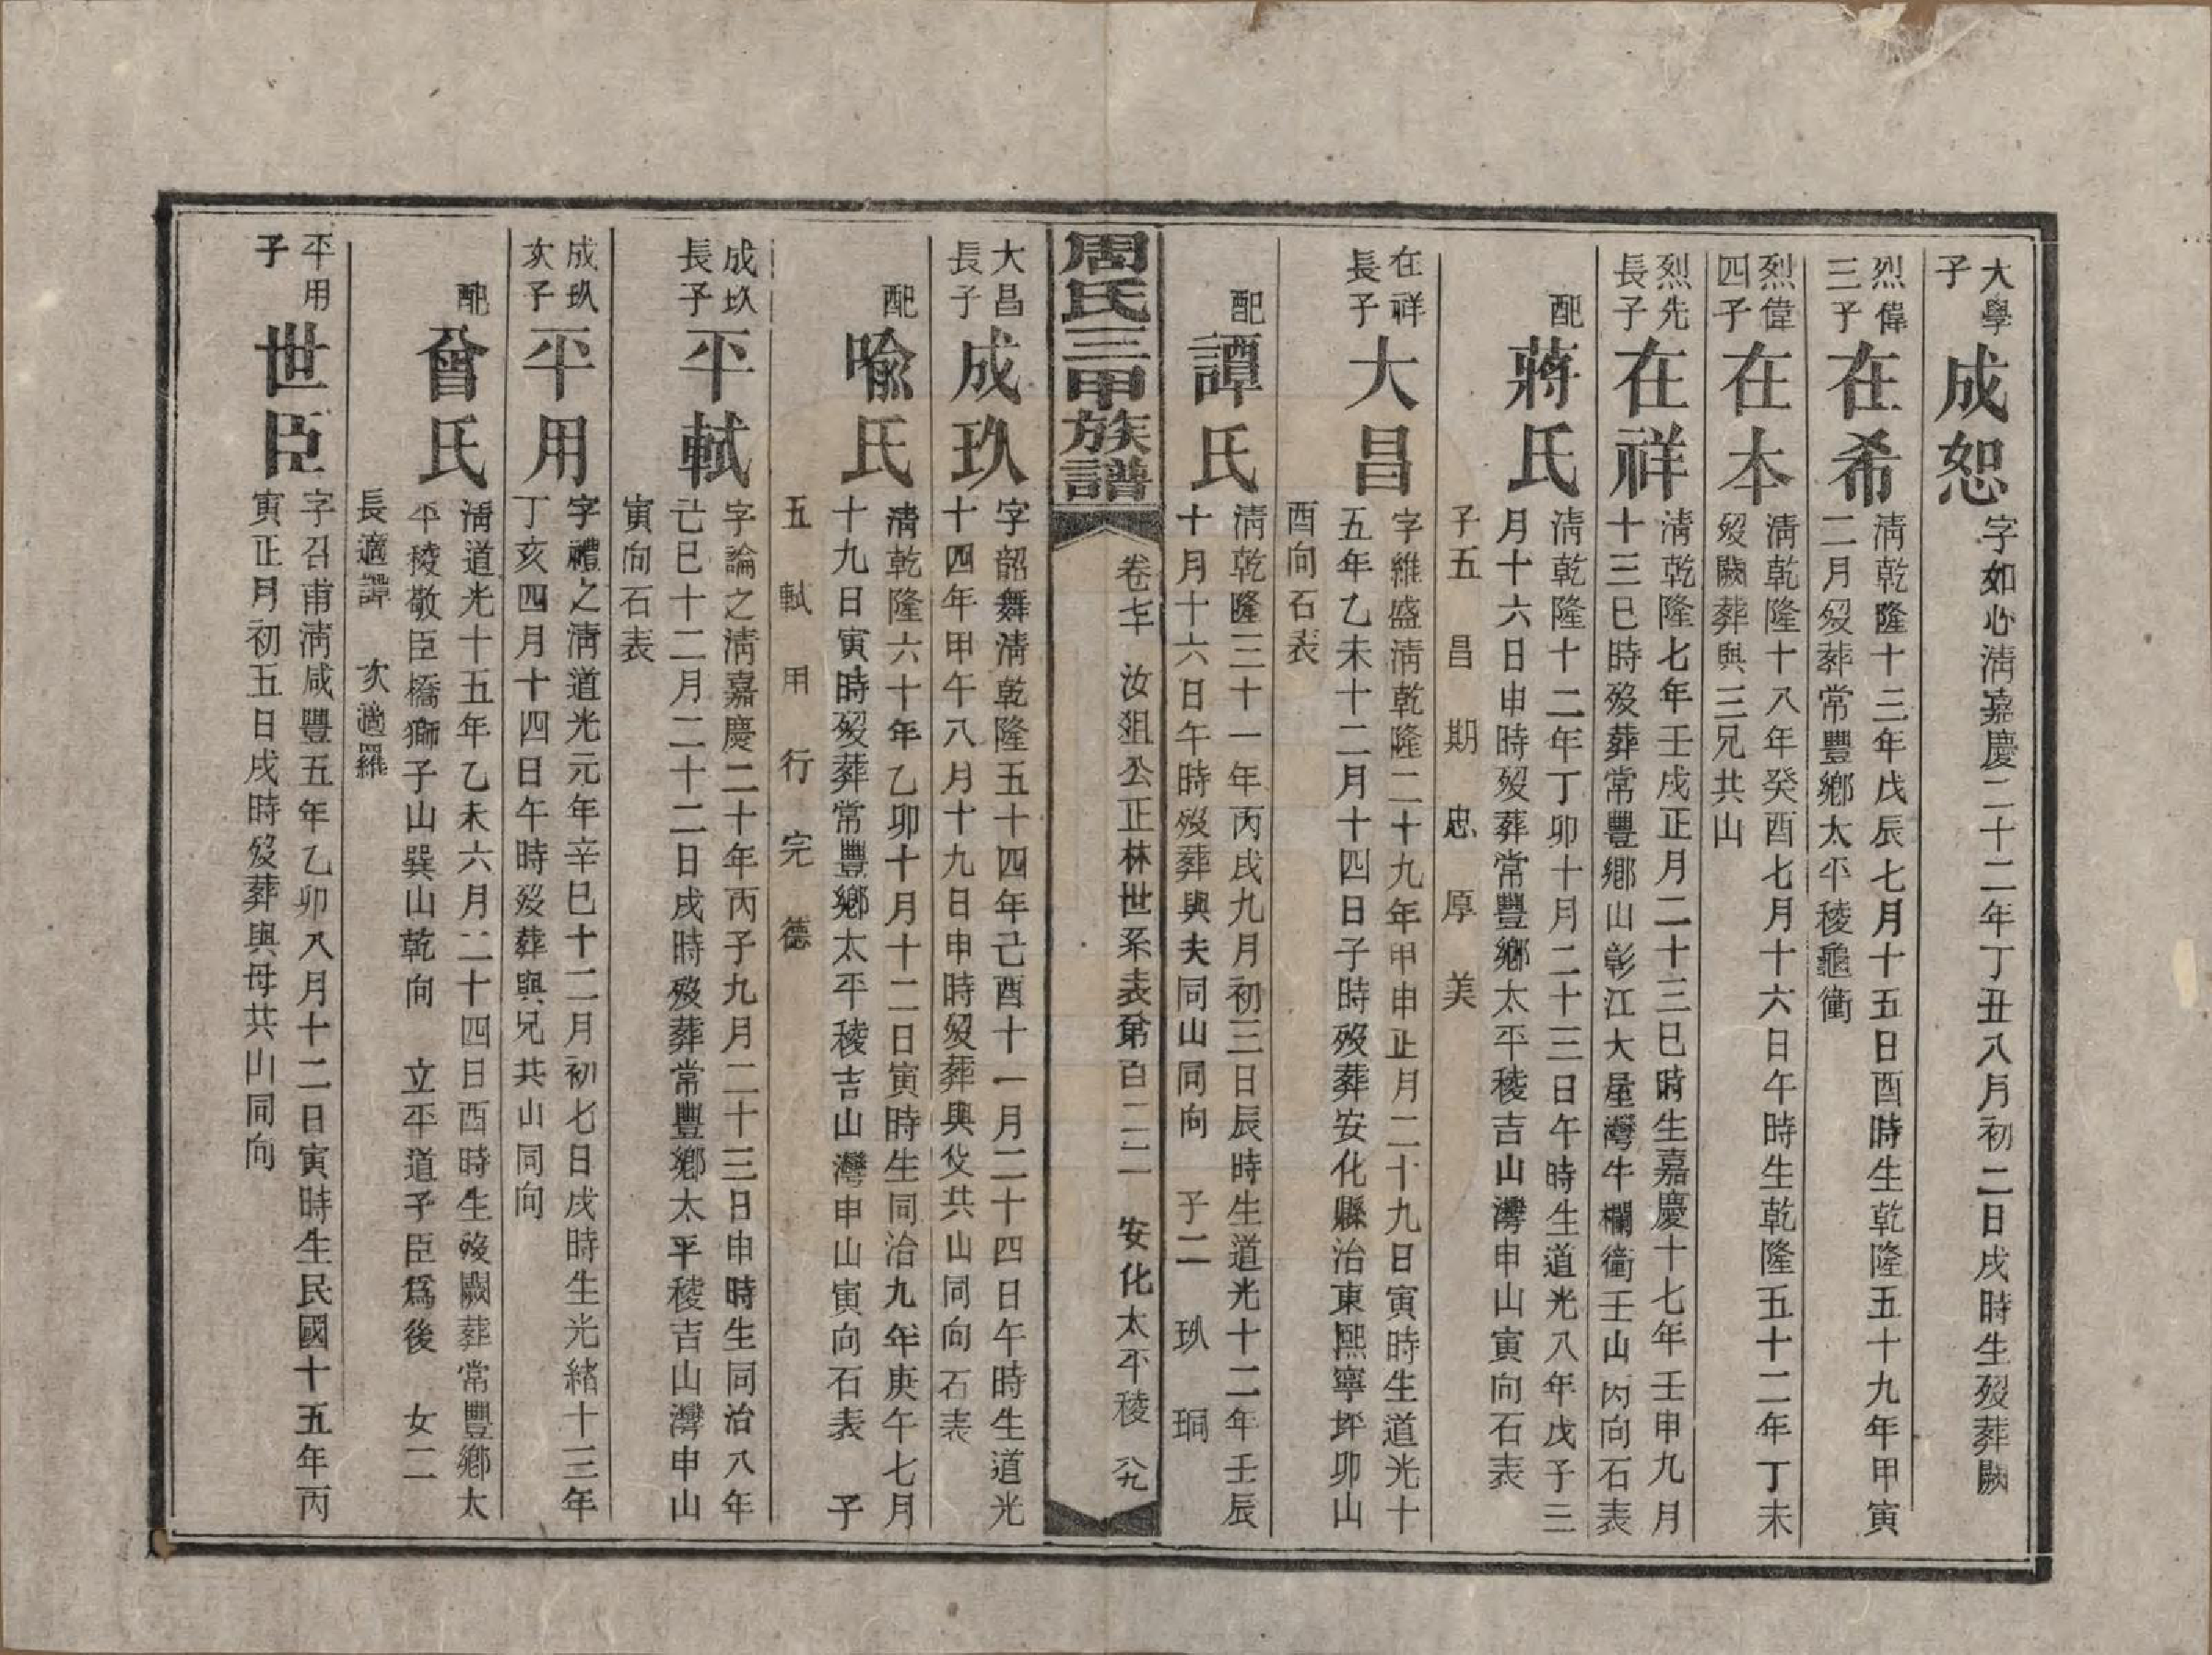 大學
子
成恕
字如心淸嘉慶二十二年丁丑八月初二日戌時生歿葬闕
烈偉
三子
在希
淸乾隆十三年戊辰七月十五日酉時生乾隆五十九年甲寅
二月歿葬常豐鄉太平稜龜衝
烈偉
四子
在本
淸乾隆十八年癸酉七月十六日午時生乾隆五十二年丁未
歿闕葬與三兄共山
烈先
長子
在祥
淸乾隆七年壬戌正月二十三巳時生嘉慶十七年壬申九月
十三巳時歿葬常豐鄉山彰江大星灣牛欄衝壬山丙向石表
配
蔣氏
淸乾隆十二年丁卯十月二十三日午時生道光八年戊子三
月十六日申時歿葬常豐鄉太平稜吉山灣申山寅向石表
子五 昌 期 忠 厚 美
在祥
長子
大昌
字維盛淸乾隆二十九年甲申正月二十九日寅時生道光十
五年乙未十二月十四日子時歿葬安化縣治東熙寧坪卯山
酉向石表
配
譚氏
淸乾隆三十一年丙戌九月初三日辰時生道光十二年壬辰
十月十六日午時歿葬與夫同山同向 子二 玖 珦
周氏三甲族譜
卷七下 汝狙公正林世系表第百二二 安化太平稜 八九
大昌
長子
成玖
字韶舞淸乾隆五十四年己酉十一月二十四日午時生道光
十四年甲午八月十九日申時歿葬與父共山同向石表
配
喻氏
淸乾隆六十年乙卯十月十二日寅時生同治九年庚午七月
十九日寅時歿葬常豐鄉太平稜吉山灣申山寅向石表 子
五 軾 用 行 完 德
成玖
長子
平軾
字論之淸嘉慶二十年丙子九月二十三日申時生同治八年
己巳十二月二十二日戌時歿葬常豐鄉太平稜吉山灣申山
寅向石表
成玖
次子
平用
字禮之淸道光元年辛巳十二月初七日戌時生光緒十三年
丁亥四月十四日午時歿葬與兄共山同向
配
曾氏
淸道光十五年乙未六月二十四日酉時生歿闕葬常豐鄉太
平稜敬臣橋獅子山巽山乾向 立平道子臣爲後 女二
長適譚 次適羅
平用
子
世臣
字召甫淸咸豐五年乙卯八月十二日寅時生民國十五年丙
寅正月初五日戌時歿葬與母共山同向